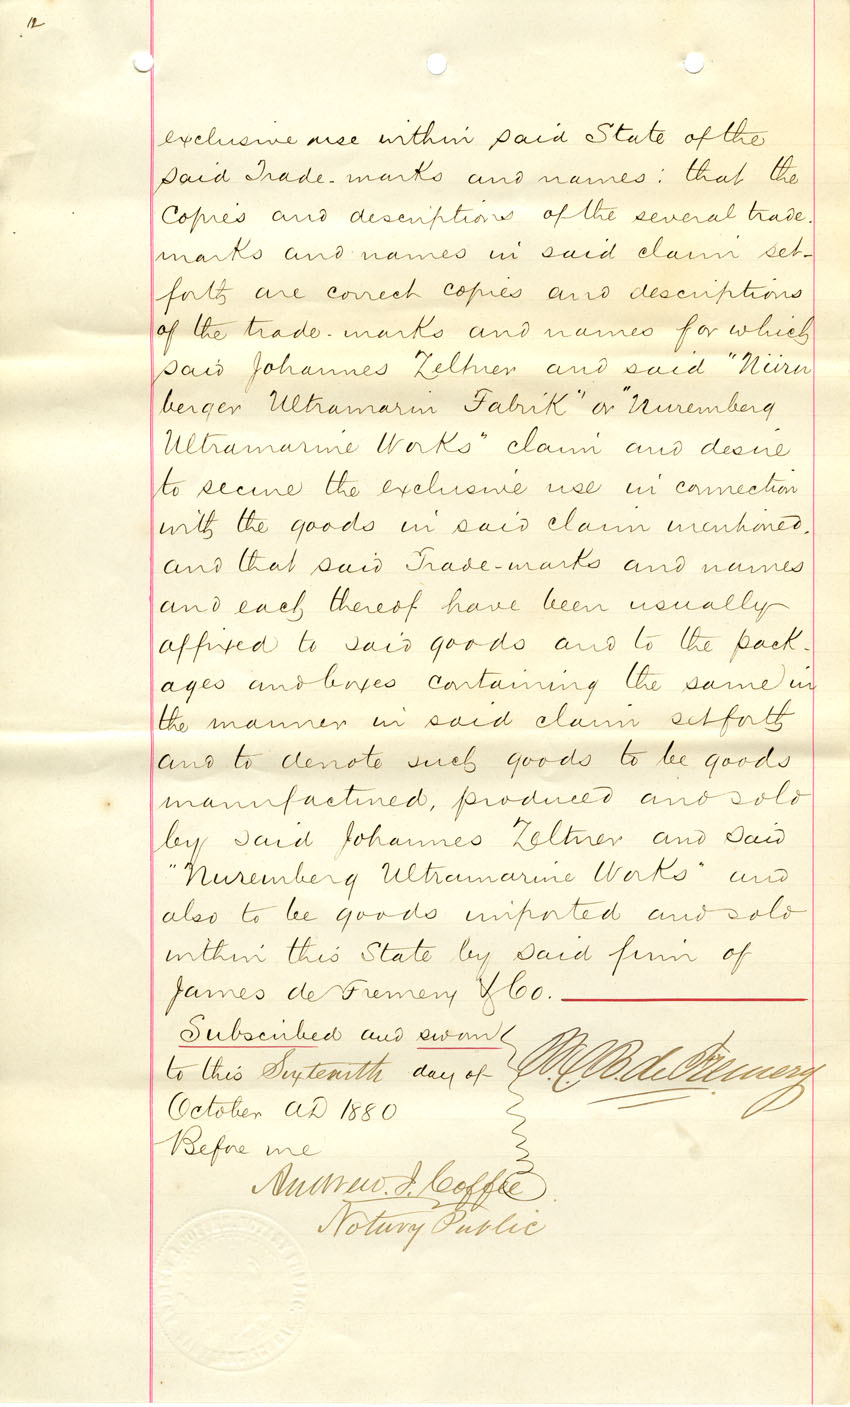 12
exclusive use within said State of the
said Trade-marks and names: that the
Copies and descriptions of the several trade-
marks and names in said claim set-
forth are correct copies and descriptions
of the trade-marks and names for which
said Johannes Zeltner and said "Nürn
berger Ultramarin Fabrik" or "Nuremberg
Ultramarine Works" claim and desire
to secure the exclusive use in connection
with the goods in said claim mentioned.
and that said Trade-marks and names
and each thereof have been usually
affixed to said goods and to the pack-
ages and boxes containing the same in
the manner in said claim set forth
and to denote such goods to be goods
manufactured, produced and sold
by said Johannes Zeltner and said
"Nuremberg Ultramarine Works" and
also to be goods imported and sold
within this State by said firm of
James de Fremery & Co.
Subscribed and sworn
to this Sixteenth day of
October AD 1880
Before me
B. de Fremery
Andrew J. Coffee
Notary Public